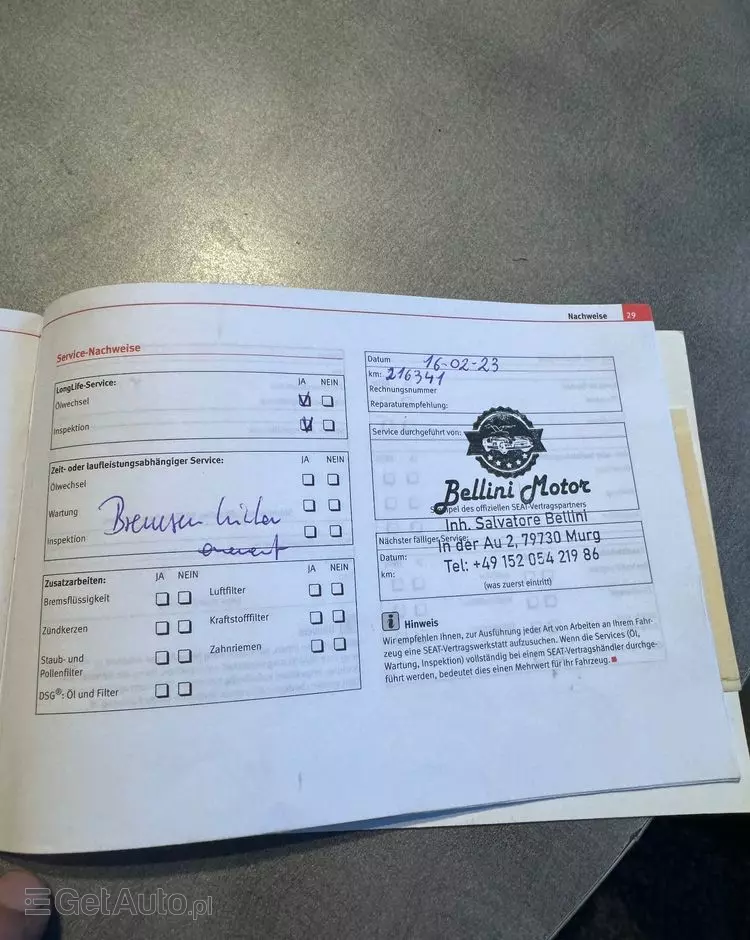 Nachweise 29
Service-Nachweise
LongLife-Service: JA NEIN
Ölwechsel
Inspektion
Zeit- oder laufleistungsabhängiger Service: JA NEIN
Ölwechsel
Wartung
Inspektion
Bremsen hinten
erneuert
Zusatzarbeiten: JA NEIN JA NEIN
Bremsflüssigkeit Luftfilter
Zündkerzen Kraftstofffilter
Staub- und Zahnriemen
Pollenfilter
DSG®: Öl und Filter
Datum 16-02-23
km: 216341
Rechnungsnummer
Reparaturempfehlung:
Service durchgeführt von:
Bellini Motor
des offiziellen SEAT-Vertragspartners
Inh. Salvatore Bellini
Nächster fälliger Service:
In der Au 2, 79730 Murg
Datum:
Tel: +49 152 054 219 86
km:
(was zuerst eintritt)
i Hinweis
Wir empfehlen Ihnen, zur Ausführung jeder Art von Arbeiten an Ihrem Fahr-
zeug eine SEAT-Vertragswerkstatt aufzusuchen. Wenn die Services (Öl,
Wartung, Inspektion) vollständig bei einem SEAT-Vertragshändler durchge-
führt werden, bedeutet dies einen Mehrwert für Ihr Fahrzeug.
GetAuto.pl